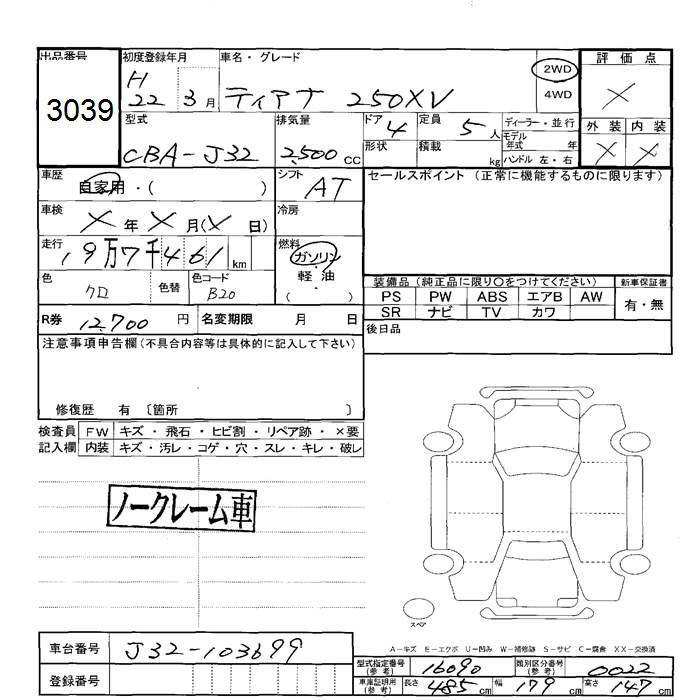 出品番号
3039
初度登録年月
H
22 3月
車名・グレード
ティアナ 250XV
2WD
4WD
評価点
X
外装 内装
X X
型式
CBA-J32
排気量
2,500 CC
ドア 4
形状
定員 5人
積載 kg
ディーラー・並行
モデル
年式 年
ハンドル 左・右
車歴
自家用・( )
シフト
AT
セールスポイント (正常に機能するものに限ります)
車検
X 年 X 月(X 日)
冷房
走行
19万7千461 km
燃料
ガソリン
軽・油
( )
色
クロ
色替
色コード
B20
装備品 (純正品に限り○をつけてください)
新車保証書
PS PW ABS エアB AW
SR ナビ TV カワ
有・無
R券 12,700 円
名変期限 月 日
後日品
注意事項申告欄(不具合内容等は具体的に記入して下さい)
修復歴 有 〔箇所 〕
検査員
記入欄
FW キズ・飛石・ヒビ割・リペア跡・×要
内装 キズ・汚レ・コゲ・穴・スレ・キレ・破レ
ノークレーム車
スペア
A-キズ E-エクボ U-凹み W-補修跡 S-サビ C-腐食 XX-交換済
車台番号 J32-103699
登録番号
型式指定番号
(参考)
16090
類別区分番号
(参考)
0022
車庫証明用
(参考)
長さ 485cm 幅 179cm 高さ 147cm